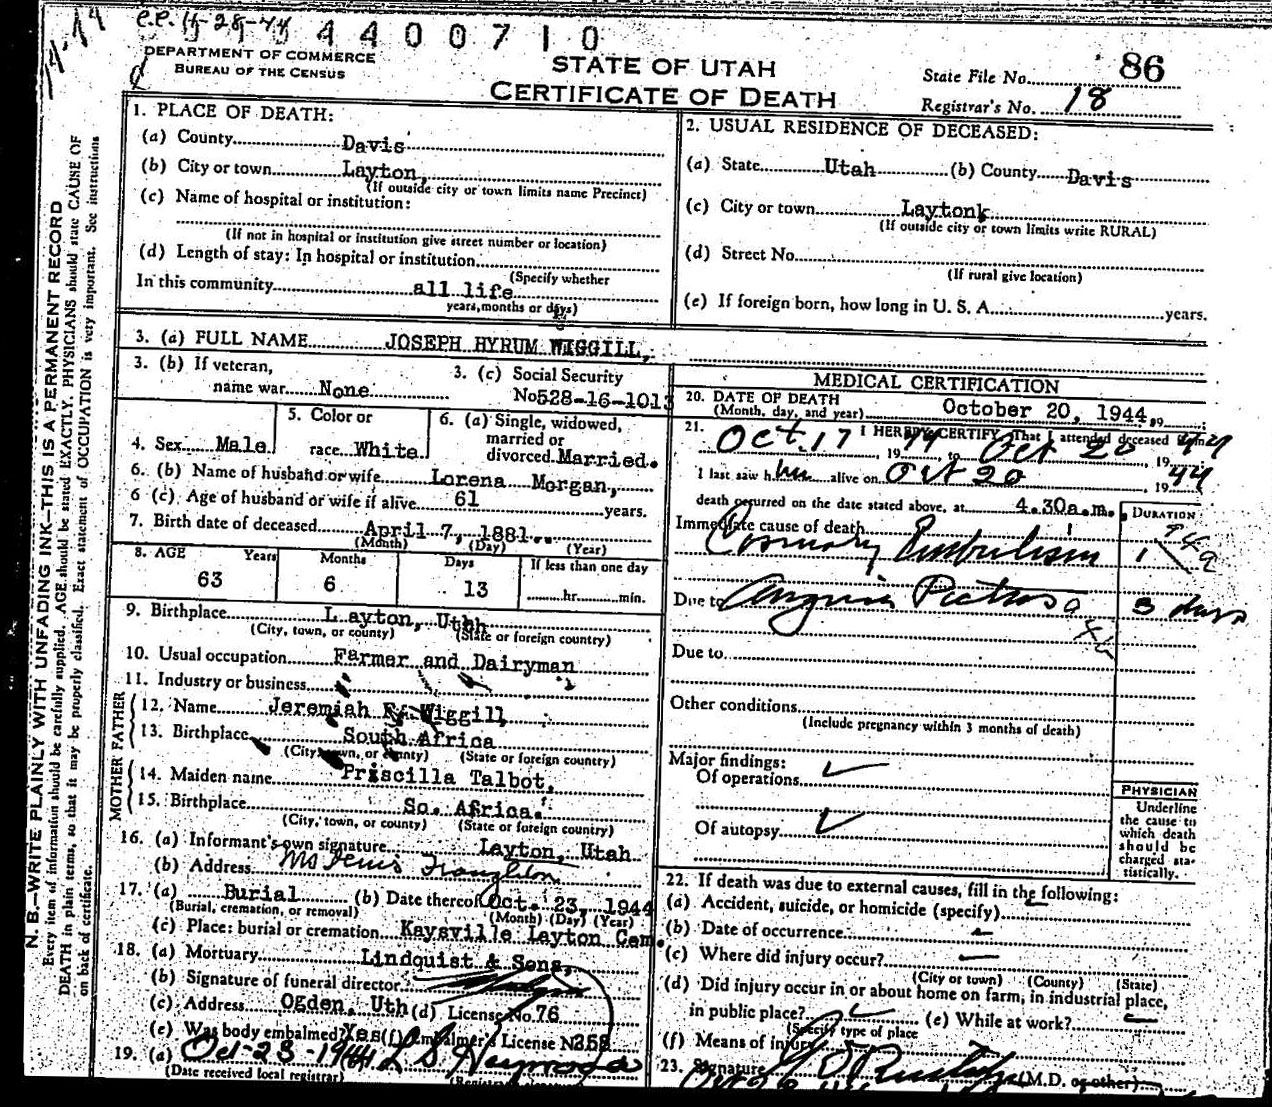 c.c. 11-28-44
4 4 0 0 7 1 0
DEPARTMENT OF COMMERCE
BUREAU OF THE CENSUS
STATE OF UTAH
CERTIFICATE OF DEATH
State File No. 86
Registrar's No. 18
N. B.—WRITE PLAINLY WITH UNFADING INK—THIS IS A PERMANENT RECORD
Every item of information should be carefully supplied. AGE should be stated EXACTLY. PHYSICIANS should state CAUSE OF
DEATH in plain terms, so that it may be properly classified. Exact statement of OCCUPATION is very important. See instructions
on back of certificate.
1. PLACE OF DEATH:
(a) County Davis
(b) City or town Layton,
(If outside city or town limits name Precinct)
(c) Name of hospital or institution:
(If not in hospital or institution give street number or location)
(d) Length of stay: In hospital or institution
(Specify whether
In this community all life
years, months or days)
2. USUAL RESIDENCE OF DECEASED:
(a) State Utah (b) County Davis
(c) City or town Layton
(If outside city or town limits write RURAL)
(d) Street No.
(If rural give location)
(e) If foreign born, how long in U. S. A. years.
3. (a) FULL NAME JOSEPH HYRUM WIGGILL,
3. (b) If veteran,
name war None
3. (c) Social Security
No 528-16-1013
4. Sex Male
5. Color or
race White
6. (a) Single, widowed,
married or
divorced Married.
6. (b) Name of husband or wife Lorena Morgan,
6 (c). Age of husband or wife if alive 61 years.
7. Birth date of deceased April 7, 1881.
(Month) (Day) (Year)
8. AGE Years Months Days If less than one day
63 6 13 hr. min.
9. Birthplace Layton, Utah
(City, town, or county) (State or foreign country)
10. Usual occupation Farmer and Dairyman
11. Industry or business
FATHER
12. Name Jeremiah F. Wiggill,
13. Birthplace South Africa
(City, town, or county) (State or foreign country)
MOTHER
14. Maiden name Priscilla Talbot,
15. Birthplace So. Africa.
(City, town, or county) (State or foreign country)
16. (a) Informant's own signature Layton, Utah
(b) Address
17. (a) Burial (b) Date thereof Oct. 23, 1944
(Burial, cremation, or removal) (Month) (Day) (Year)
(c) Place: burial or cremation Kaysville Layton Cem.
18. (a) Mortuary Lindquist & Sons,
(b) Signature of funeral director
(c) Address Ogden, Uth (d) License No. 76
(e) Was body embalmed? Yes (f) Embalmer's License N 358
19. (a) Oct-23-1944
(Date received local registrar)
MEDICAL CERTIFICATION
20. DATE OF DEATH
(Month, day, and year) October 20, 1944, 19
21. I HEREBY CERTIFY That I attended deceased from
Oct. 17 1944 to Oct 20 1944
I last saw him alive on Oct 20 1944
death occurred on the date stated above, at 4.30a.m.
DURATION
Immediate cause of death
Coronary Embolism 1
Due to Angina Pectoris 3 days
Due to
Other conditions
(Include pregnancy within 3 months of death)
Major findings:
Of operations
Of autopsy
PHYSICIAN
Underline
the cause to
which death
should be
charged sta-
tistically.
22. If death was due to external causes, fill in the following:
(a) Accident, suicide, or homicide (specify)
(b) Date of occurrence
(c) Where did injury occur?
(City or town) (County) (State)
(d) Did injury occur in or about home on farm, in industrial place,
in public place? (e) While at work?
(Specify type of place
(f) Means of injury
23. Signature (M.D. or other)